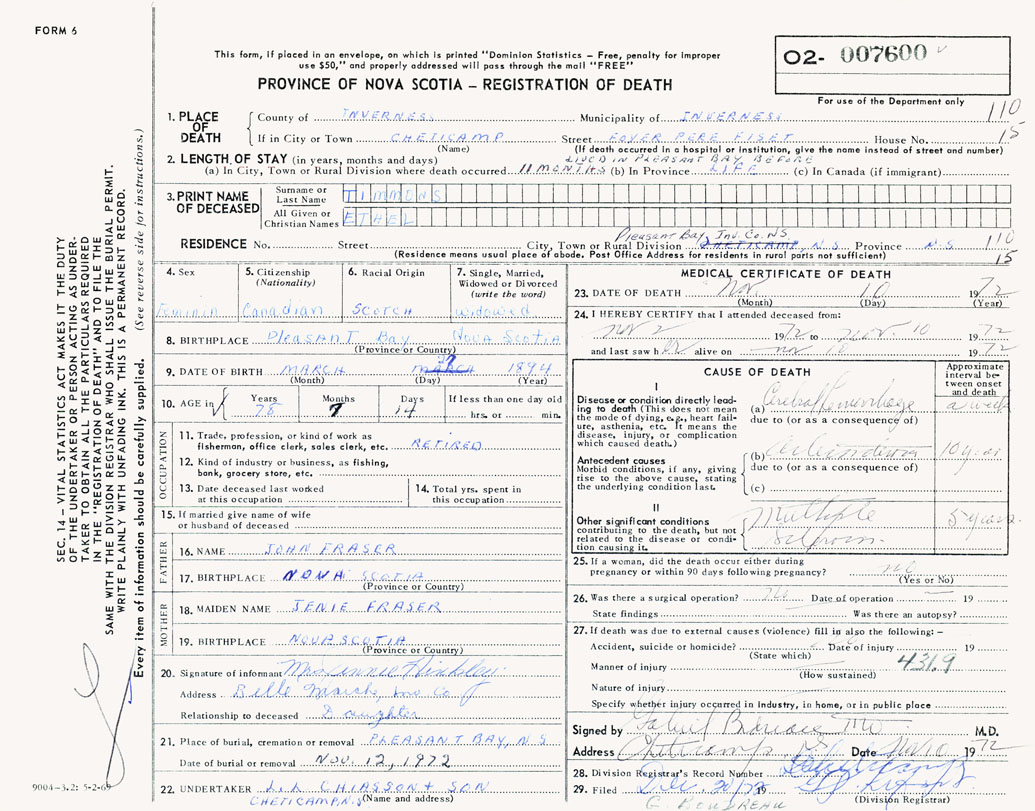 FORM 6
This form, if placed in an envelope, on which is printed "Dominion Statistics – Free, penalty for improper
use $50," and properly addressed will pass through the mail "FREE"
O2- 007600
PROVINCE OF NOVA SCOTIA – REGISTRATION OF DEATH
For use of the Department only
1. PLACE OF DEATH
County of INVERNESS Municipality of INVERNESS 110
If in City or Town CHETICAMP Street FOYER PERE FISET House No. 15
(Name) (If death occurred in a hospital or institution, give the name instead of street and number)
2. LENGTH OF STAY (in years, months and days) LIVED IN PLEASANT BAY BEFORE
(a) In City, Town or Rural Division where death occurred 11 MONTHS (b) In Province LIFE (c) In Canada (if immigrant)
3. PRINT NAME OF DECEASED
Surname or Last Name TIMMONS
All Given or Christian Names ETHEL
Pleasant Bay, Inv. Co. NS
RESIDENCE No. Street City, Town or Rural Division CHETICAMP, N.S Province N.S 110
(Residence means usual place of abode. Post Office Address for residents in rural parts not sufficient) 15
4. Sex
Feminin
5. Citizenship
(Nationality)
Canadian
6. Racial Origin
Scotch
7. Single, Married,
Widowed or Divorced
(write the word)
widowed
8. BIRTHPLACE Pleasant Bay Nova Scotia
(Province or Country)
9. DATE OF BIRTH MARCH 27 1894
(Month) (Day) (Year)
10. AGE in
Years Months Days If less than one day old
78 7 14 hrs. or min.
OCCUPATION
11. Trade, profession, or kind of work as
fisherman, office clerk, sales clerk, etc. RETIRED
12. Kind of industry or business, as fishing,
bank, grocery store, etc.
13. Date deceased last worked
at this occupation
14. Total yrs. spent in
this occupation
15. If married give name of wife
or husband of deceased
FATHER
16. NAME JOHN FRASER
17. BIRTHPLACE NOVA SCOTIA
(Province or Country)
MOTHER
18. MAIDEN NAME JENIE FRASER
19. BIRTHPLACE NOVA SCOTIA
(Province or Country)
20. Signature of informant Mrs Annie Hinkley
Address Belle Marche, Inv Co
Relationship to deceased Daughter
21. Place of burial, cremation or removal PLEASANT BAY, N S
Date of burial or removal NOV. 12, 1972
22. UNDERTAKER L.L CHIASSON & SON
CHETICAMP N.S (Name and address)
MEDICAL CERTIFICATE OF DEATH
23. DATE OF DEATH Nov. 10 1972
(Month) (Day) (Year)
24. I HEREBY CERTIFY that I attended deceased from:
Nov 2 1972 to Nov. 10 1972
and last saw her alive on Nov 10 1972
CAUSE OF DEATH
Approximate
interval be-
tween onset
and death
I
Disease or condition directly lead-
ing to death (This does not mean
the mode of dying, e.g., heart fail-
ure, asthenia, etc. It means the
disease, injury, or complication
which caused death.)
(a) Cerebral hemorrhage a week
due to (or as a consequence of)
Antecedent causes
Morbid conditions, if any, giving
rise to the above cause, stating
the underlying condition last.
(b) 10 years
due to (or as a consequence of)
(c)
II
Other significant conditions
contributing to the death, but not
related to the disease or condi-
tion causing it.
Multiple 5 years
25. If a woman, did the death occur either during
pregnancy or within 90 days following pregnancy? no
(Yes or No)
26. Was there a surgical operation? no Date of operation 19
State findings Was there an autopsy?
27. If death was due to external causes (violence) fill in also the following:–
Accident, suicide or homicide? Date of injury 19
(State which)
Manner of injury 431.9
(How sustained)
Nature of injury
Specify whether injury occurred in industry, in home, or in public place
Signed by Gabriel Boudreau MD M.D.
Address Cheticamp Date Nov 10 1972
28. Division Registrar's Record Number
29. Filed Dec 20/72 19
(Division Registrar)
G. BOUDREAU
SEC. 14 – VITAL STATISTICS ACT MAKES IT THE DUTY
OF THE UNDERTAKER OR PERSON ACTING AS UNDER-
TAKER TO OBTAIN ALL THE PARTICULARS REQUIRED
IN THE "REGISTRATION OF DEATH" AND TO FILE THE
SAME WITH THE DIVISION REGISTRAR WHO SHALL ISSUE THE BURIAL PERMIT.
WRITE PLAINLY WITH UNFADING INK. THIS IS A PERMANENT RECORD.
Every item of information should be carefully supplied. (See reverse side for instructions.)
9004-3.2: 5-2-69